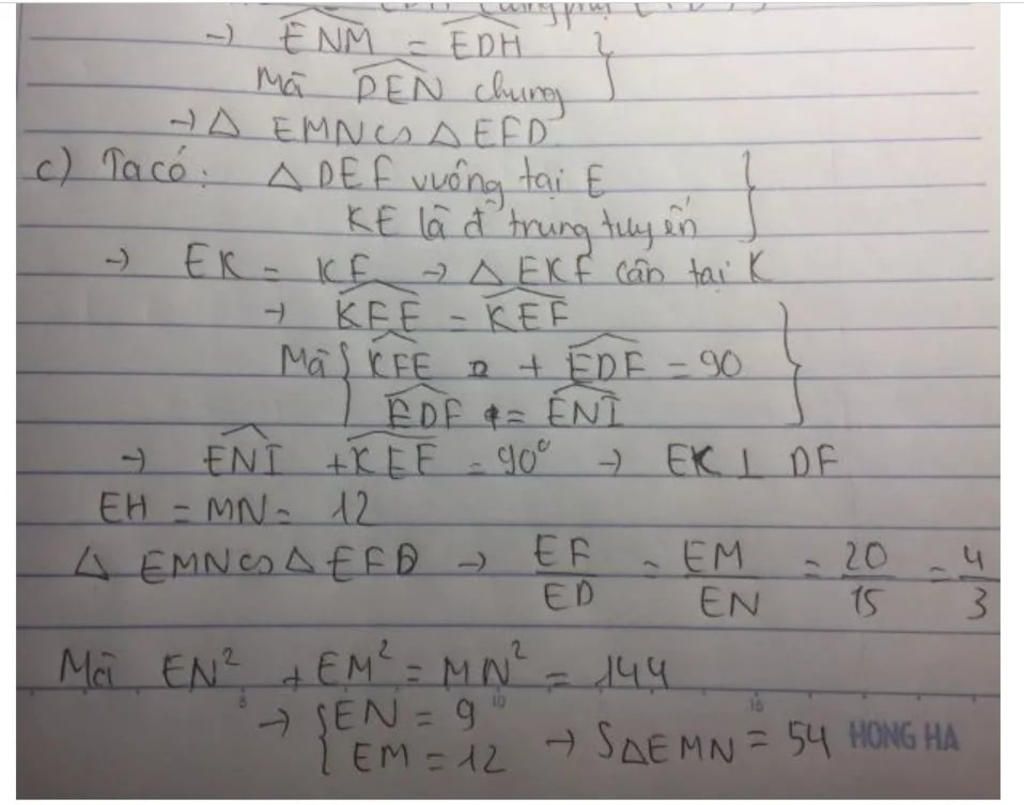 → ENM = EDH
Mà DEN chung
→ △ EMN ∽ △ EFD
c) Ta có: △ DEF vuông tại E
KE là đ trung tuyến
→ EK = KF → △ EKF cân tại K
→ KFE = KEF
Mà KFE + EDF = 90
EDF = ENI
→ ENI + KEF = 90° → EK ⊥ DF
EH = MN = 12
△ EMN ∽ △ EFD → EF/ED = EM/EN = 20/15 = 4/3
Mà EN² + EM² = MN² = 144
→ { EN = 9
EM = 12 → S△EMN = 54 HONG HA